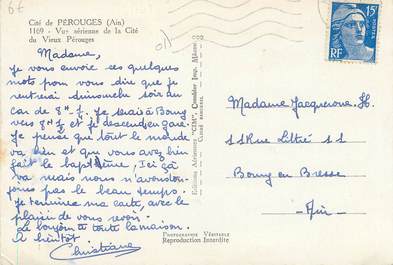 6€
Cité de PÉROUGES (Ain)
1169 - Vue aérienne de la Cité
du Vieux Pérouges
Madame,
Je vous envoie ces quelques
mots pour vous dire que je
rentrerai dimanche soir au
car de 8h. Je serai à Bourg
vers 8h et je descendrai gare.
Je pense que tout le monde
va bien et que vous avez bien
fait le baptême, Ici ça
va mais nous n'avons
pas le beau temps.
Je terminerai ma carte, avec le
plaisir de vous revoir.
Le bonjour à toute la maison.
A bientôt
Christiane
Editions Aériennes "CIM", Combier Imp. Mâcon
PHOTOGRAPHIE VÉRITABLE
Reproduction Interdite
15F
RF
Madame Jacquemone H.
11 Rue Littré 11
Bourg en Bresse
Ain